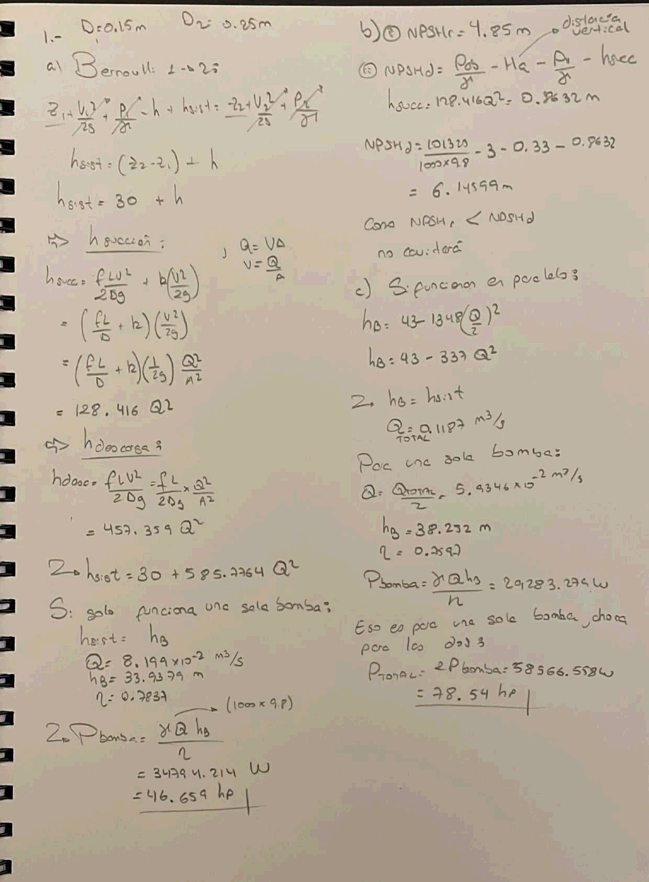 1.- D1=0.15m D2= 0.25m
a) Bernoulli 1→2:
Z1 + V1²/2g + P1/γ - h + hsist = Z2 + V2²/2g + P2/γ
hsist = (Z2-Z1) + h
hsist = 30 + h
⇒ h succión :
, Q = VA
V = Q/A
hsucc = fLV²/2Dg + k(V²/2g)
= (fL/D + k)(V²/2g)
= (fL/D + k)(1/2g) Q²/A²
= 128.416 Q²
⇒ h descarga :
hdesc = fLV²/2Dg = fL/2Dg × Q²/A²
= 457.359 Q²
∴ hsist = 30 + 585.7764 Q²
Si solo funciona una sola bomba:
hsist = hB
Q = 8.199×10⁻² m³/s
hB = 33.9379 m
η = 0.7837
∴ Pbomba = γ Q hB / η → (1000 × 9.8)
= 34794.214 W
= 46.659 hp
b) ① NPSHr = 4.85 m
distancia vertical
② NPSHd = Pab/γ - Ha - Pv/γ - hsucc
hsucc = 128.416Q² = 0.8632 m
NPSHd = 101325/1000×9.8 - 3 - 0.33 - 0.8632
= 6.14599 m
Como NPSHr < NPSHd
no cavitará
c) Si funcionan en paralelo:
hB = 43 - 1348(Q/2)²
hB = 43 - 337 Q²
∴ hB = hsist
Q TOTAL = 0.1187 m³/s
Para una sola bomba:
Q = QTOTAL/2 = 5.9346×10⁻² m³/s
hB = 38.252 m
η = 0.7597
Pbomba = γ Q hB / η = 29283.279 W
Eso es para una sola bomba, ahora
para las dos:
PTOTAL = 2Pbomba = 58566.558 W
= 78.54 hp